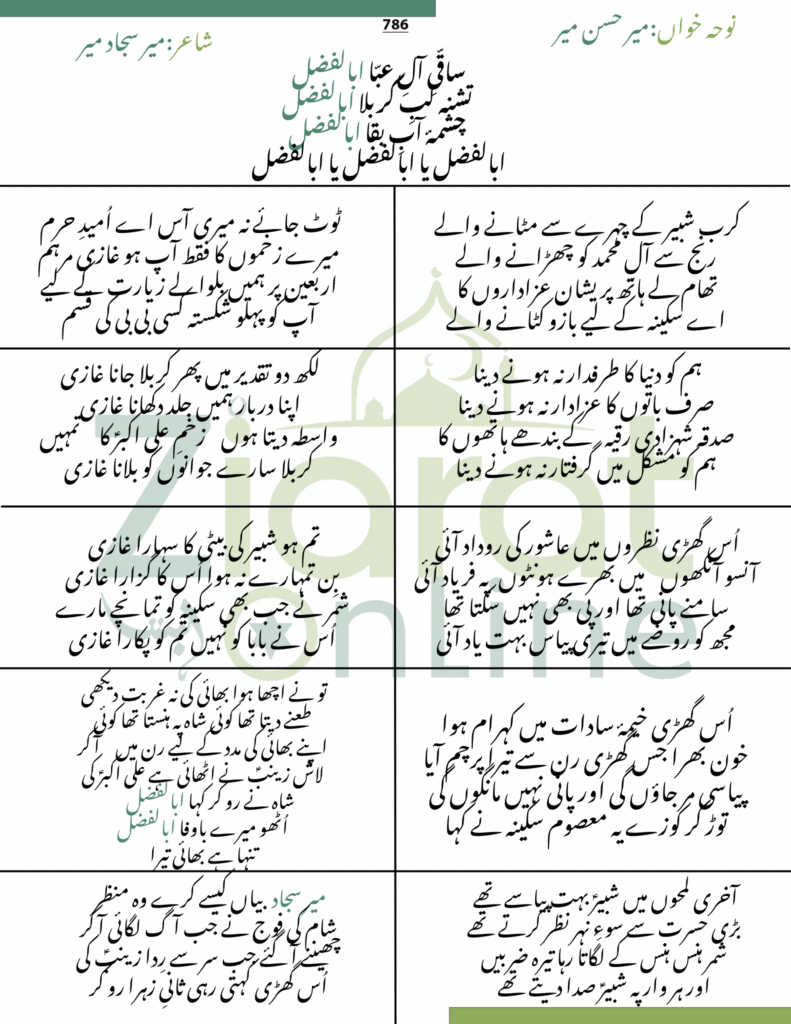 786
نوحہ خواں: میر حسن میر
شاعر: میر سجاد میر
ساقیِ آلِ عبّا ابالفضل
تشنہ لبِ کربلا ابالفضل
چشمۂ آبِ بقا ابالفضل
ابالفضل یا ابالفضل یا ابالفضل
کرب شبیر کے چہرے سے مٹانے والے
رنج سے آلِ محمد کو چھڑانے والے
تھام لے ہاتھ پریشان عزاداروں کا
اے سکینہ کے لیے بازو کٹانے والے
ٹوٹ جائے نہ میری آس اے اُمیدِ حرم
میرے زخموں کا فقط آپ ہو غازی مرہم
اربعین پر ہمیں بلوالے زیارت کے لیے
آپ کو پہلو شکستہ کسی بی بی کی قسم
ہم کو دنیا کا طرفدار نہ ہونے دینا
صرف باتوں کا عزادار نہ ہونے دینا
صدقہ شہزادی رقیہ کے بندھے ہاتھوں کا
ہم کو مشکل میں گرفتار نہ ہونے دینا
لکھ دو تقدیر میں پھر کربلا جانا غازی
اپنا دربار ہمیں جلد دکھانا غازی
واسطہ دیتا ہوں زخمِ علی اکبرؑ کا تمہیں
کربلا سارے جوانوں کو بلانا غازی
اُس گھڑی نظروں میں عاشور کی روداد آئی
آنسو آنکھوں میں بھرے ہونٹوں پہ فریاد آئی
سامنے پانی تھا اور پی بھی نہیں سکتا تھا
مجھ کو روضے میں تیری پیاس بہت یاد آئی
تم ہو شبیر کی بیٹی کا سہارا غازی
بِن تمہارے نہ ہوا اُس کا گزارا غازی
شمر نے جب بھی سکینہ کو تمانچے مارے
اُس نے بابا کو نہیں تم کو پکارا غازی
اُس گھڑی خیمۂ سادات میں کہرام ہوا
خون بھرا جس گھڑی رن سے تیرا پرچم آیا
پیاسی مر جاؤں گی اور پانی نہیں مانگوں گی
توڑ کر کوزے یہ معصوم سکینہ نے کہا
تو نے اچھا ہوا بھائی کی نہ غربت دیکھی
طعنے دیتا تھا کوئی شاہ پہ ہنستا تھا کوئی
اپنے بھائی کی مدد کے لیے رن میں آکر
لاش زینب نے اٹھائی ہے علی اکبرؑ کی
شاہ نے رو کر کہا ابالفضل
اُٹھو میرے باوفا ابالفضل
تنہا ہے بھائی تیرا
آخری لمحوں میں شبیرؑ بہت پیاسے تھے
بڑی حسرت سے سوءِ نہر نظر کرتے تھے
شمر ہنس ہنس کے لگاتا رہا تیرہ ضربیں
اور ہر وار پہ شبیرؑ صدا دیتے تھے
میر سجاد بیاں کیسے کرے وہ منظر
شام کی فوج نے جب آگ لگائی آکر
چھیننے آگئے جب سر سے رِدا زینبؑ کی
اُس گھڑی کہتی رہی ثانیِ زہرا رو کر
Ziarat
Online